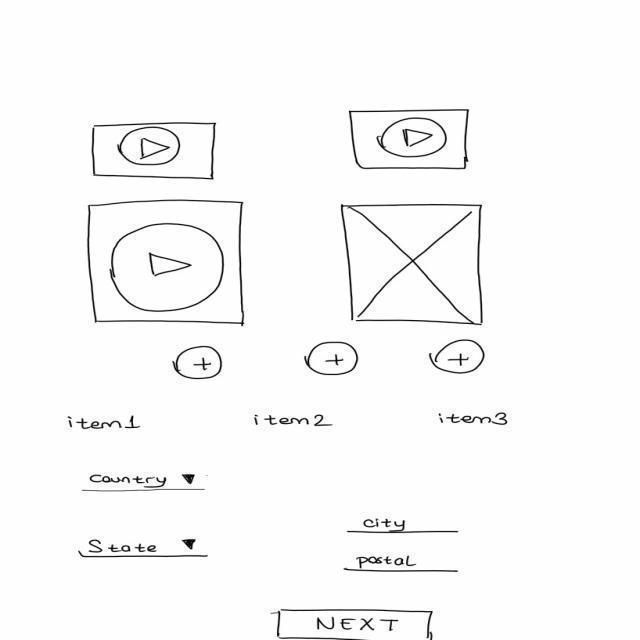 + + +
item1 item2 item3
Country
city
State
postal
NEXT